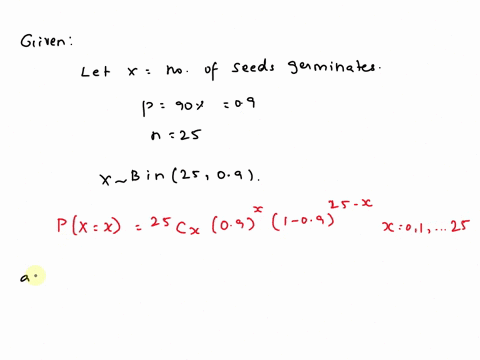 Given:
Let x = no. of seeds germinates.
p = 90% = 0.9
n = 25
x ~ Bin (25, 0.9).
P(X = x) = ²⁵Cₓ (0.9)ˣ (1-0.9)²⁵⁻ˣ x = 0,1,...25
a.